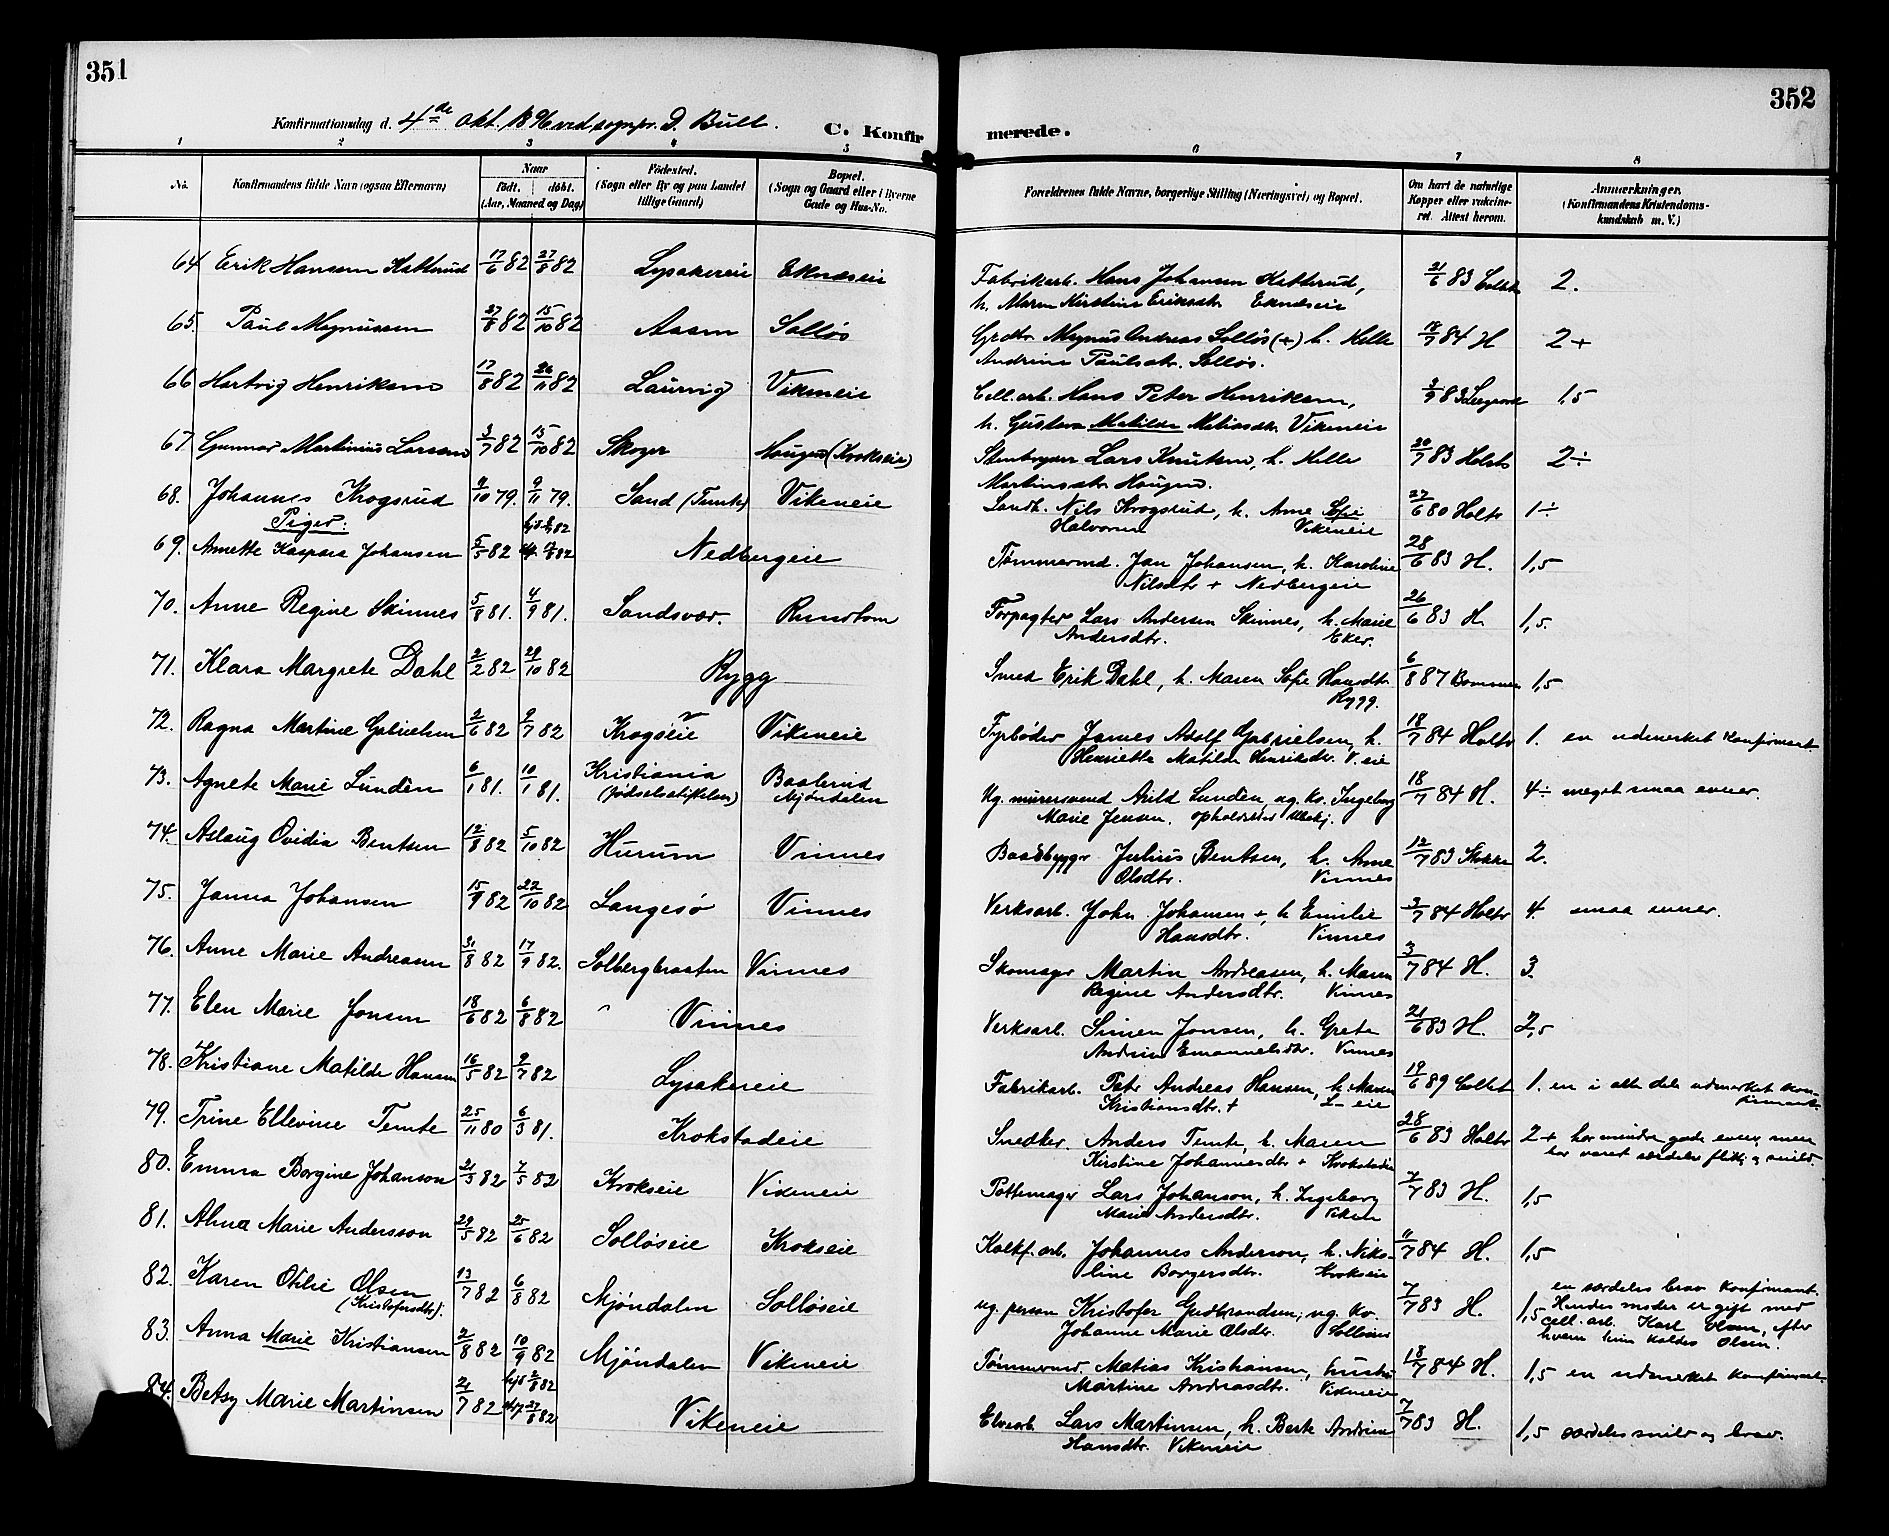 351
352
Konfirmationsdag d. 4de Okt. 1896 ved sognpr. D. Bull.
C. Konfirmerede.
1 2 3 4 5 6 7 8
No. Konfirmandens fulde Navn (ogsaa Efternavn) Naar født. døbt. (Aar, Maaned og Dag) Fødested. (Sogn eller By og paa Landet tillige Gaard) Bopæl. (Sogn og Gaard eller i Byerne Gade og Hus-No. Forældrenes fulde Navne, borgerlige Stilling (Næringsvei) og Bopæl. Om havt de naturlige Kopper eller vaccineret. Attest herom. Anmærkninger. (Konfirmandens Kristendomskundskab m. V.)
64 Erik Hansen Katterud 17/6 82 27/8 82 Lysakereie Eknæseie Fabrikarb. Hans Johansen Katterud, 21/6 83 2.
h. Maren Kirstine Eriksdtr. Eknæseie
65. Paul Magnussen 27/8 82 15/10 82 Aasen Solløs Grdbr. Magnus Andreas Solløs (+) h. Helle 18/7 84 H 2+
Andrine Paulsdtr. Solløs.
66 Hartvig Henriksen 17/8 82 26/11 82 Laurvig Vikeneie Cell. arb. Hans Peter Henriksen, 3/9 83 1,5
h. Gustava Matilde Vikeneie
67. Gunnar Martinius Larsen 3/7 82 15/10 82 Skoger Haugen (Krokseie) Lars Knutsen, h. Helle 20/7 83 Holst 2÷
Martinsdtr. Haugen.
68. Johannes Krogsrud 9/10 79. 9/11 79. Sand (Temte) Vikeneie Sandh. Nils Krogsrud, h. Anne Sofie 27/6 80 Holst 1÷
Halvorsen Vikeneie
Piger:
69. Annette Kaspara Johansen 5/5 82 Nedbergeie Tømmermd. Jan Johansen, h. Karoline 28/6 83 H. 1,5
Nilsdtr + Nedbergeie
70. Anne Regine Skinnes 5/8 81. 4/9 81. Sandsvær. Rundtom Forpagter Lars Andersen Skinnes, h. Marie 26/6 83 H. 1,5.
Andersdtr. Eker.
71. Klara Margrete Dahl 2/2 82 29/10 82 Rygg Smed Erik Dahl, h. Maren Sofie Hansdtr. 6/8 87 Bommen 1,5
Rygg.
72. Ragna Martine Gabrielsen 2/6 82 9/7 82 Krogseie Vikeneie Fyrbøder James Adolf Gabrielsen, h. 18/7 84 Holst 1. en udmerket Konfirmant
Henriette Matilde Henriksdtr. V.eie
73. Agnete Marie Lundén 6/1 81. 10/1 81. Kristiania (fødselsstiftelsen) Baalerud Mjøndalen Ug. murersvend Arild Lundén, ug. Kv. Ingeborg 18/7 84 H. 4÷ meget smaa evner.
Marie Jensen.
74. Aslaug Ovidia Bentsen 12/8 82 5/10 82 Hurum Vinnes Baadbygger Julius Bentsen, h. Anne 12/7 83 Stokke 2.
Olsdtr. Vinnes
75. Janna Johansen 15/9 82 22/10 82 Langesø Vinnes Verksarb. John Johansen +, h Emilie 3/7 84 Holst 4. smaa evner.
Hansdtr. Vinnes
76. Anne Marie Andreasen 31/8 82 17/9 82. Solbergbraaten Vinnes Skomager Martin Andreasen, h. Maren 3/7 84 H. 3.
Regine Andersdtr. Vinnes
77. Elen Marie Jonsen 18/6 82 6/8 82 Vinnes Verksarb. Simen Jonsen, h. Grete 21/6 83 H. 2,5
Andrine Emanuelsdtr. Vinnes
78. Kristiane Matilde Hansen 16/5 82 9/7 82 Lysakereie Fabrikarb. Peter Andreas Hansen, h. Maren 19/6 89 1. en i alle dele udmerket konfirmant.
Kristiansdtr. + L-eie
79. Trine Ellevine Temte 25/11 80 6/3 81. Krokstadeie Snedker. Anders Temte, h. Maren 28/6 83 Holst 2+ har mindre gode evner, men
Kirstine Johannesdtr + Krokstadeie har været særdeles flittig og snild.
80. Emma Borgine Johanson 21/3 82 7/5 82 Krokseie Vikeneie Pottemager Lars Johanson, h. Ingeborg 7/7 83 H. 1,5
Marie Andersdtr. Viken
81. Alma Marie Andersson 29/5 82 25/6 82 Solløseie Krokseie Kalkf. arb. Johannes Anderson, h. Nikoline 11/7 84 H. 1,5
Borgersdtr. Krokseie
82. Karen Otilie Olsen (Kristofersdtr). 13/7 82 6/8 82 Mjøndalen Solløseie ug. person Kristofer Gudbrandsen, ug. Kv. 7/7 83 H. 1,5 en særdeles brav Konfirmant.
Johanne Marie Olsdtr. Solløseie Hendes moder er gift med cell. arb. Karl Olsen, efter hvem hun kaldes Olsen.
83. Anna Marie Kristiansen 2/8 82 10/9 82 Mjøndalen Vikeneie Tømmermd. Matias Kristiansen, hustru 18/7 84 H. 1,5 en udmerket konfirmant.
Martine Andreasdtr. Vikeneie
84. Betsy Marie Martinsen 2/7 82 Vikeneie Elvearb. Lars Martinsen, h. Berte Andrine 7/7 83 H. 1,5 særdeles snild og brav.
Hansdtr. Vikeneie